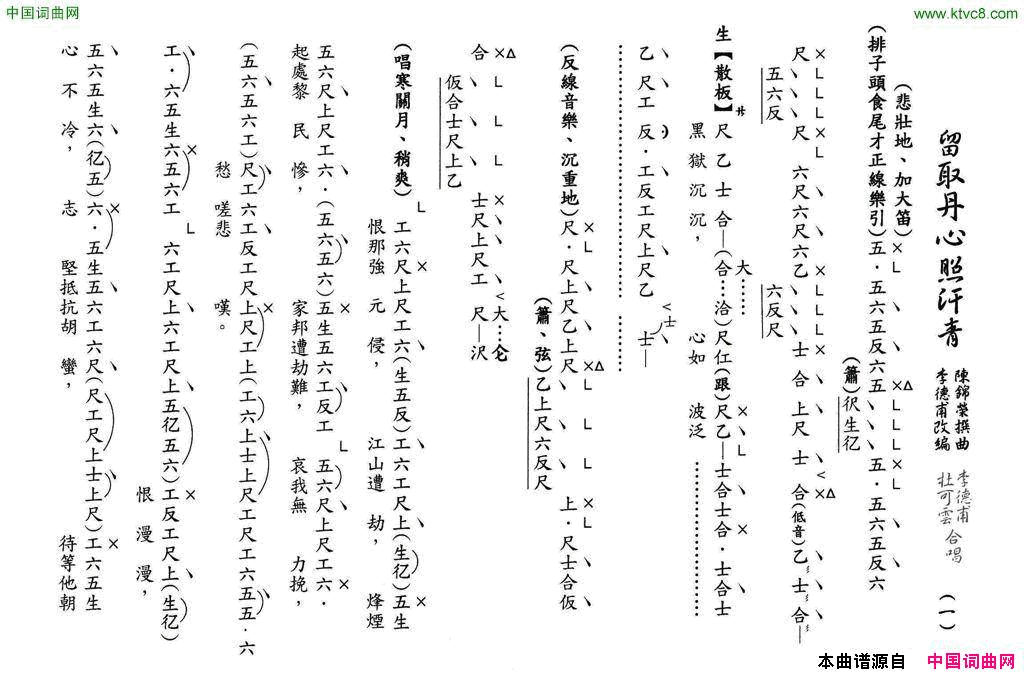 中国词曲网
www.ktvc8.com
留取丹心照汗青
陳錦榮撰曲
李德甫改編
李德甫
杜可雲 合唱
(一)
(悲壯地、加大笛)
(排子頭食尾才正線樂引)五·五六五反六五 五·五六五反六
(簫)伬生亿
尺 尺 六尺六尺六乙 士 合 上 尺 士 合(低音)乙 士 合—
五六反
六反尺
生【散板】尺 乙 士 合—(合⋯洽)尺仜(跟)尺乙—士合士合·士合士
大⋯⋯
黑獄沉沉,心如波泛
乙 尺工 反·工反工尺上尺乙 士—
士
(反線音樂、沉重地)尺·尺上尺乙上尺 上·尺士合仮
(簫、弦)乙上尺六反尺
合 士尺上尺工 尺—沢
大⋯仑
仮合士尺上乙
(唱寒關月、稍爽)工六尺上尺工六(生五反)工六工尺上(生亿)五生
恨那強元侵,江山遭劫,烽煙
五六尺上尺工六·(五六五六)五生五六工反工 五六尺上尺工六·
起處黎民慘,家邦遭劫難,哀我無力挽,
(五六五六工)尺工六工反工尺上尺工上(工六上士上尺工尺工六五五·六
愁嗟悲嘆。
工·六五生六五六工 六工尺上六工尺上五亿五六)工反工尺上(生亿)
恨漫漫,
五六五生六(亿五)六·五生五六工六尺(尺工尺上士上尺)工六五生
心不冷,志堅抵抗胡蠻,待等他朝
本曲谱源自 中国词曲网